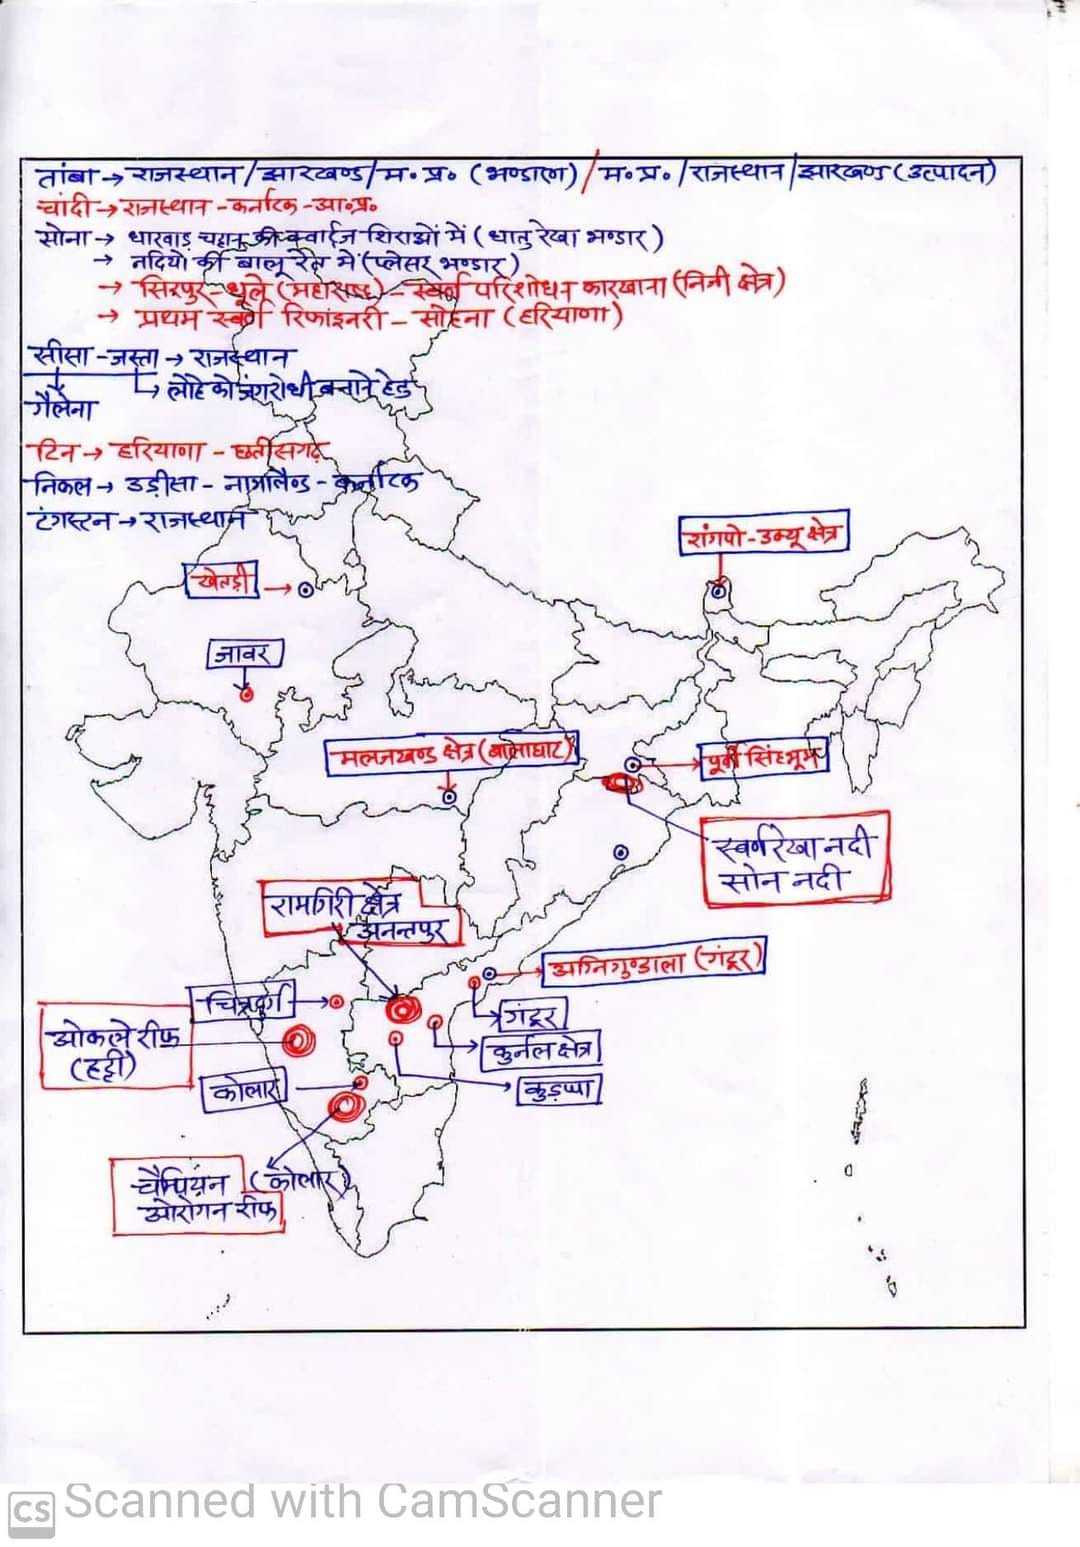 तांबा → राजस्थान / झारखण्ड / म॰ प्र॰ (भण्डारण) / म॰ प्र॰ / राजस्थान / झारखण्ड (उत्पादन)
चांदी → राजस्थान - कर्नाटक - आ॰प्र॰
सोना → धारवाड़ चट्टान की क्वार्टज शिराओं में (धातु रेखा भण्डार)
→ नदियों की बालू रेत में (प्लेसर भण्डार)
→ सिरपुर - धूले (महाराष्ट्र) - स्वर्ण परिशोधन कारखाना (निजी क्षेत्र)
→ प्रथम स्वर्ण रिफांइनरी - सोहना (हरियाणा)
सीसा - जस्ता → राजस्थान
↳ लौहे को जंगरोधी बनाने हेतु
गैलेना
टिन → हरियाणा - छत्तीसगढ़
निकल → उड़ीसा - नागालैण्ड - कर्नाटक
टंगस्टन → राजस्थान
रांगपो - उम्यू क्षेत्र
खेतड़ी
जावर
मलनखण्ड क्षेत्र (बालाघाट)
पूर्वी सिंहभूम
स्वर्णरेखा नदी
सोन नदी
रामगिरी क्षेत्र
अनन्तपुर
अग्निगुण्डाला (गंटूर)
चित्रदुर्ग
गंटूर
ओकले रीफ
(हट्टी)
कुर्नल क्षेत्र
कोलार
कुड़प्पा
चैम्पियन (कोलार)
ओरोगन रीफ
CS Scanned with CamScanner